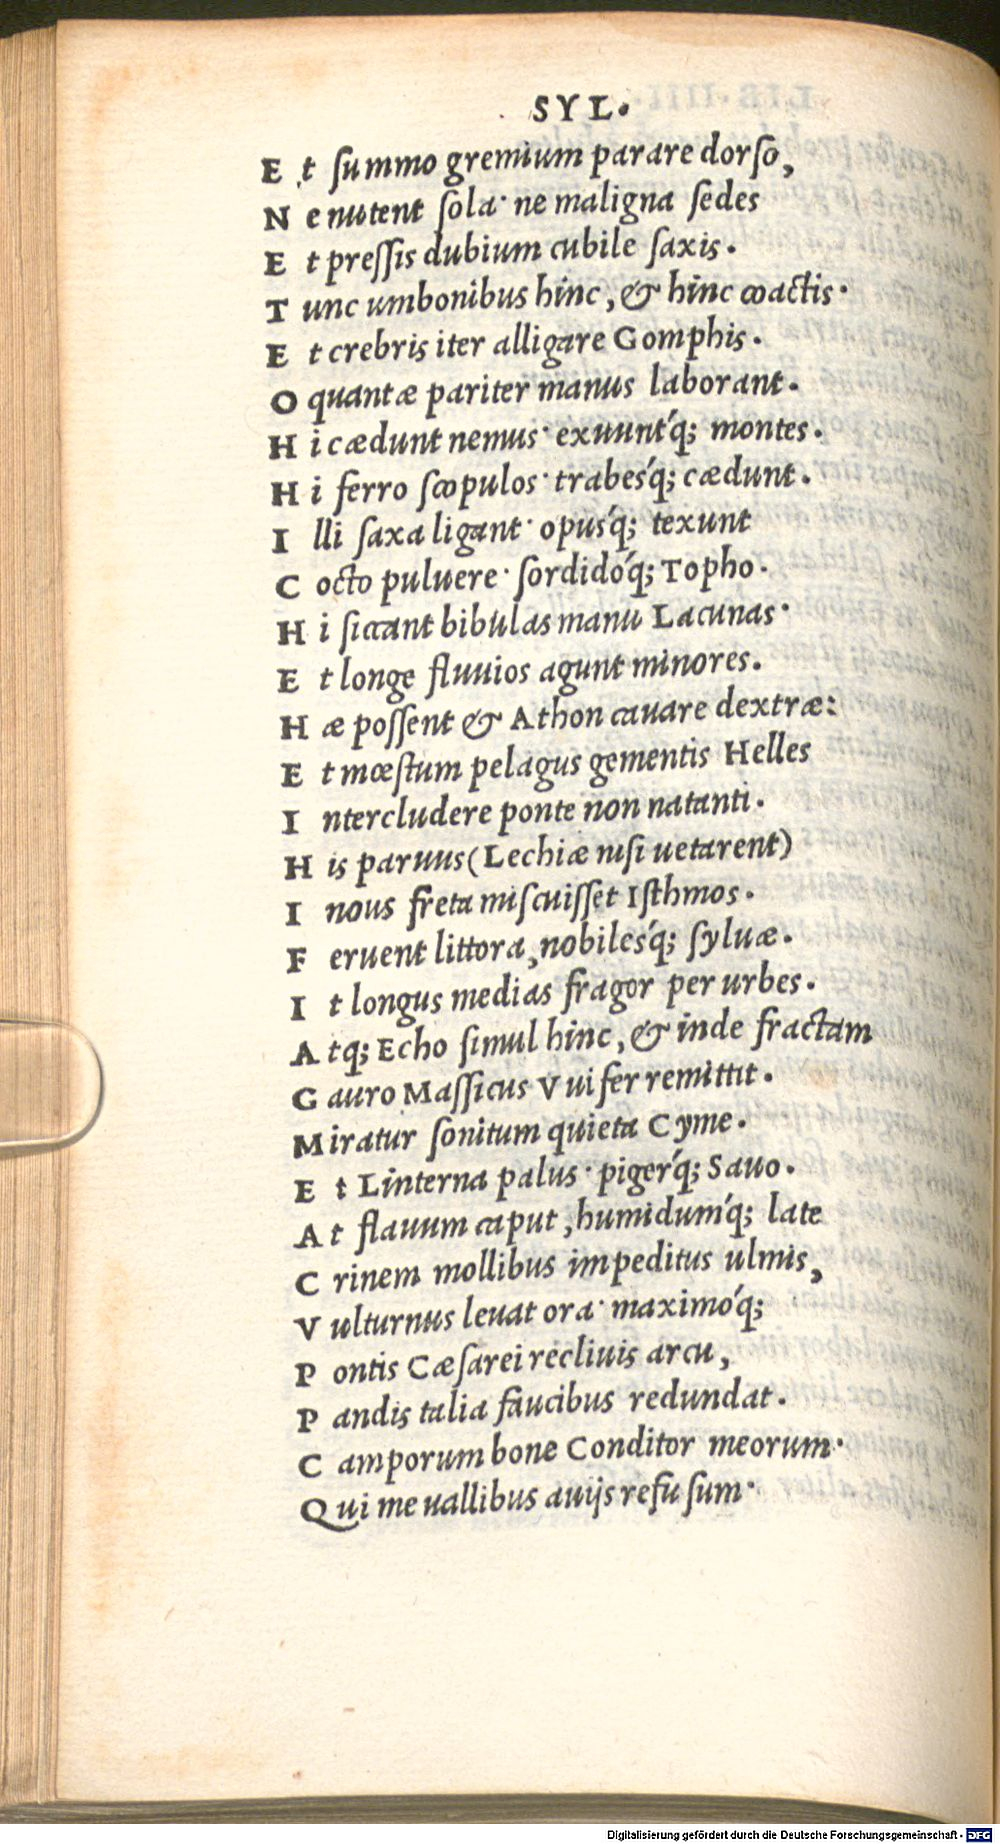 SYL.
Et ſummo gremium parare dorſo,
Ne nutent ſola· ne maligna ſedes
Et preſſis dubium cubile ſaxis.
Tunc umbonibus hinc, & hinc coactis·
Et crebris iter alligare Gomphis.
O quantæ pariter manus laborant.
Hi cædunt nemus· exuuntq́; montes.
Hi ferro ſcopulos· trabesq́; cædunt.
Illi ſaxa ligant· opusq́; texunt
Cocto puluere· ſordidóq; Topho.
Hi ſiccant bibulas manu Lacunas·
Et longe fluuios agunt minores.
Hæ poſſent & Athon cauare dextræ:
Et mœſtum pelagus gementis Helles
Intercludere ponte non natanti.
His paruus (Lechiæ niſi uetarent)
Inous freta miſcuiſſet Iſthmos.
Feruent littora, nobilesq́; ſyluæ.
It longus medias fragor per urbes.
Atq; Echo ſimul hinc, & inde fractam
Gauro Maſſicus Vuifer remittit.
Miratur ſonitum quieta Cyme.
Et Linterna palus· pigerq́; Sauo.
At flauum caput, humidumq́; late
Crinem mollibus impeditus ulmis,
Vulturnus leuat ora· maximóq;
Pontis Cæſarei recliuis arcu,
Pandis talia faucibus redundat.
Camporum bone Conditor meorum·
Qui me uallibus auijs refuſum·
Digitalisierung gefördert durch die Deutsche Forschungsgemeinschaft - DFG